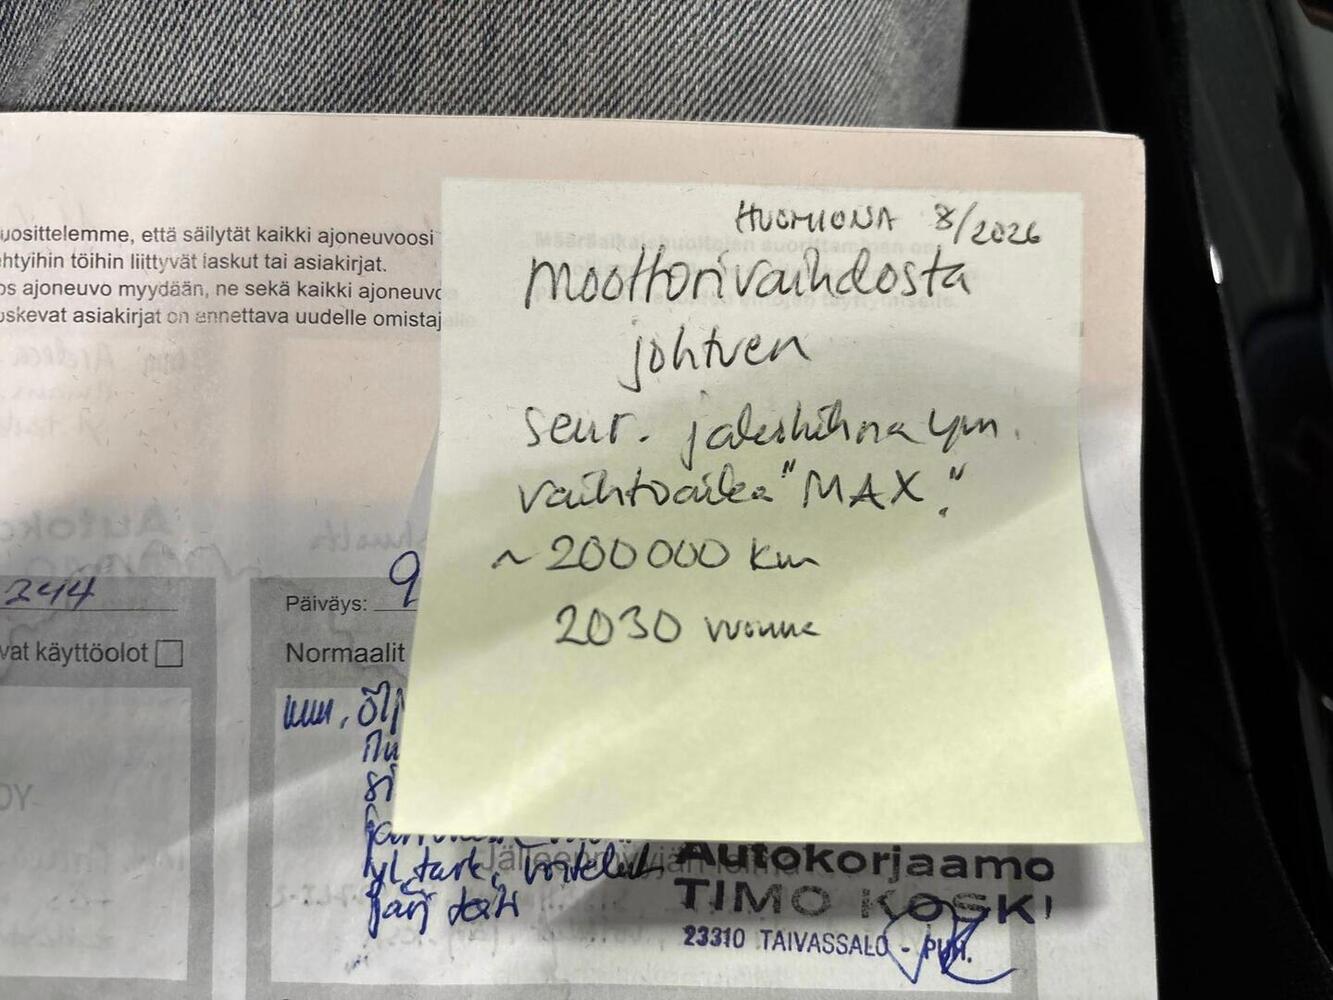 HUOMIONA 8/2026
moottorivaihdosta
johtuen
seur. jakohihna ym.
vaihtoaika "MAX."
~ 200 000 km
2030 vuonna
uosittelemme, että säilytät kaikki ajoneuvoosi
ehtyihin töihin liittyvät laskut tai asiakirjat.
os ajoneuvo myydään, ne sekä kaikki ajoneuvo
oskevat asiakirjat on annettava uudelle omistaj
244
vat käyttöolot
OY
Päiväys: 9
Normaalit
mm. ölj
si
yl. tark, voitelut
jarj
Jälleenmyyjän leima
Autokorjaamo
TIMO KOSKI
23310 TAIVASSALO - PUH.